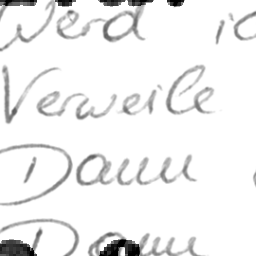 Werd ic
Verweile
Dann
Dann